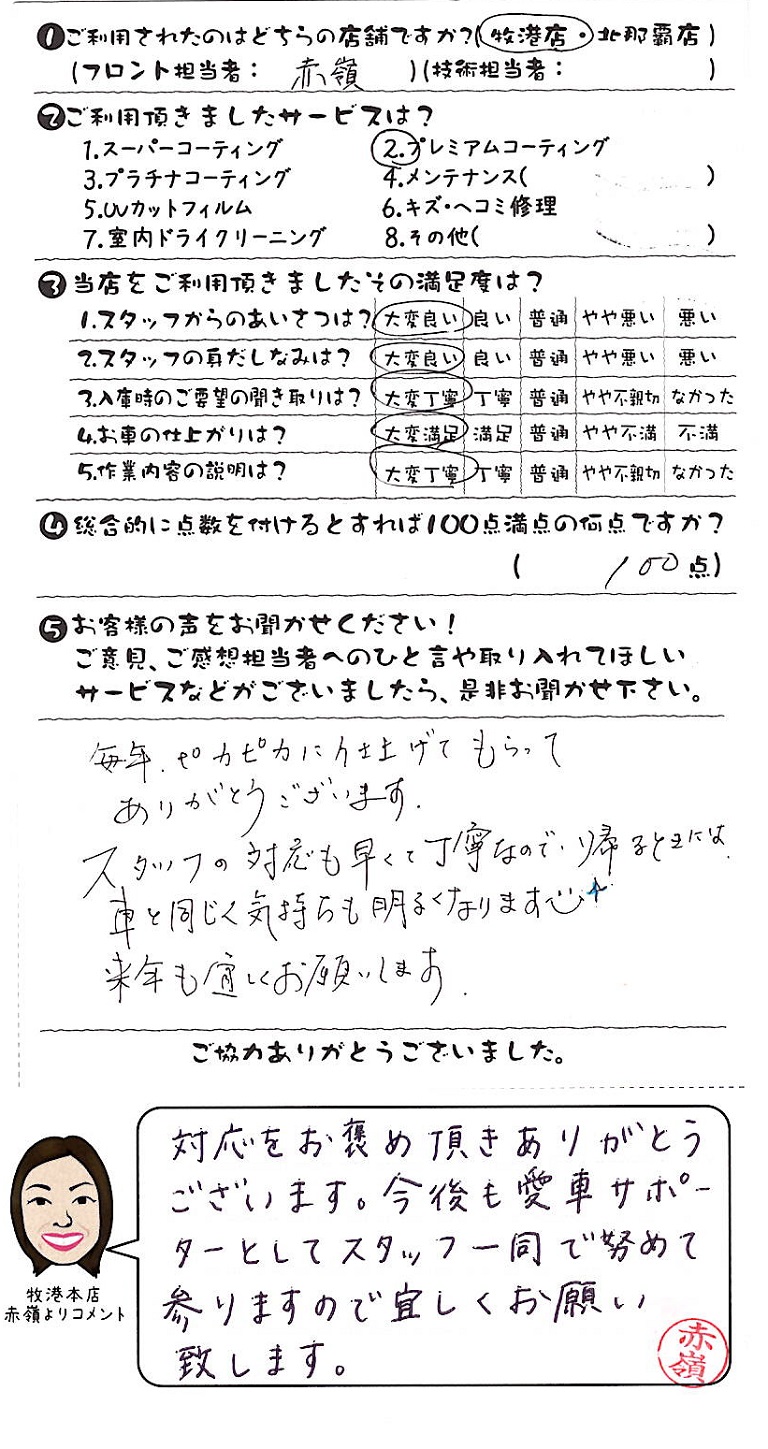 ❶ご利用されたのはどちらの店舗ですか?(牧港店・北那覇店)
(フロント担当者: 赤嶺 )(技術担当者: )
❷ご利用頂きましたサービスは?
1.スーパーコーティング 2.プレミアムコーティング
3.プラチナコーティング 4.メンテナンス( )
5.UVカットフィルム 6.キズ・ヘコミ修理
7.室内ドライクリーニング 8.その他( )
❸当店をご利用頂きましたその満足度は?
1.スタッフからのあいさつは? 大変良い 良い 普通 やや悪い 悪い
2.スタッフの身だしなみは? 大変良い 良い 普通 やや悪い 悪い
3.入庫時のご要望の聞き取りは? 大変丁寧 丁寧 普通 やや不親切 なかった
4.お車の仕上がりは? 大変満足 満足 普通 やや不満 不満
5.作業内容の説明は? 大変丁寧 丁寧 普通 やや不親切 なかった
❹総合的に点数を付けるとすれば100点満点の何点ですか?
( 100点)
❺お客様の声をお聞かせください!
ご意見、ご感想担当者へのひと言や取り入れてほしい
サービスなどがございましたら、是非お聞かせ下さい。
毎年、ピカピカに仕上げてもらって
ありがとうございます.
スタッフの対応も早くて丁寧なので、帰るときには、
車と同じく気持ちも明るくなります
来年も宜しくお願いします.
ご協力ありがとうございました。
対応をお褒め頂きありがとう
ございます。今後も愛車サポー
ターとしてスタッフ一同で努めて
参りますので宜しくお願い
致します。
牧港本店
赤嶺よりコメント
赤嶺